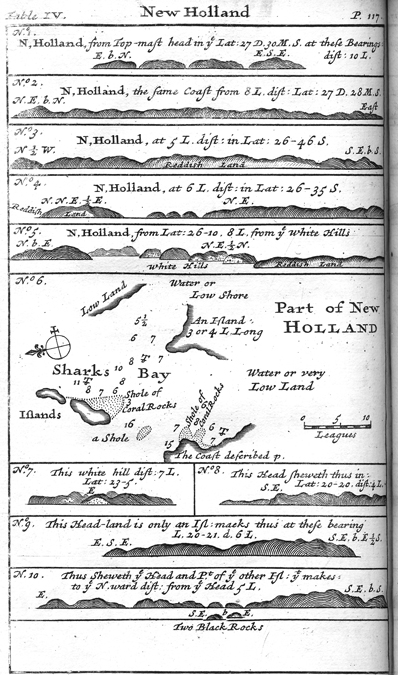 Table IV.
New Holland
P. 117.
N.º1.
N, Holland, from Top-mast head in ẙ Lat: 27 D. 30 M. S. at these Bearings
E. b. N.
E. S. E.
dist: 10 L.
N.º2.
N, Holland, the same Coast from 8 L. dist: Lat: 27 D. 28 M. S.
N. E. b. N.
East
N.º3.
N, Holland, at 5 L. dist: in Lat: 26-46 S.
N ½ W.
S. E. b S.
Reddish Land
N.º4.
N, Holland, at 6 L. dist: in Lat: 26-35 S.
N. N. E. ½ E.
N. E.
Reddish
Land
N.º5.
N, Holland, from Lat: 26-10. 8 L. from ẙ White Hills
N. b E
N. E. ½ N.
White Hills
Reddish Land
N.º6.
Low Land
Water or
Low Shore
Part of New
HOLLAND
An Island
3 or 4 L. Long
5½
6
7
8
7
7
Sharks Bay
Water or very
Low Land
11
10
8
8
7
6
3
Shole of
Coral Rocks
Shole of
Coral Rocks
Islands
a Shole
7
6
7
15
0 5 10
Leagues
The Coast described p.
N.º7.
This white hill dist: 7 L.
Lat: 23-5.
E
N.º8.
This Head sheweth thus in:
S. E.
Lat: 20-20. dist: 4 L.
N.º9.
This Head-land is only an Isl: maeks thus at these bearing
L. 20-21. d. 6 L.
E. S. E.
S. E. b. E ½ S.
N. 10.
Thus Sheweth ẙ Head and P.t of ẙ other Isl: ẙ makes:
to ẙ N. ward dist: from ẙ Head 5 L.
E.
S. E. b S.
S. E. b E.
Two Black Rocks